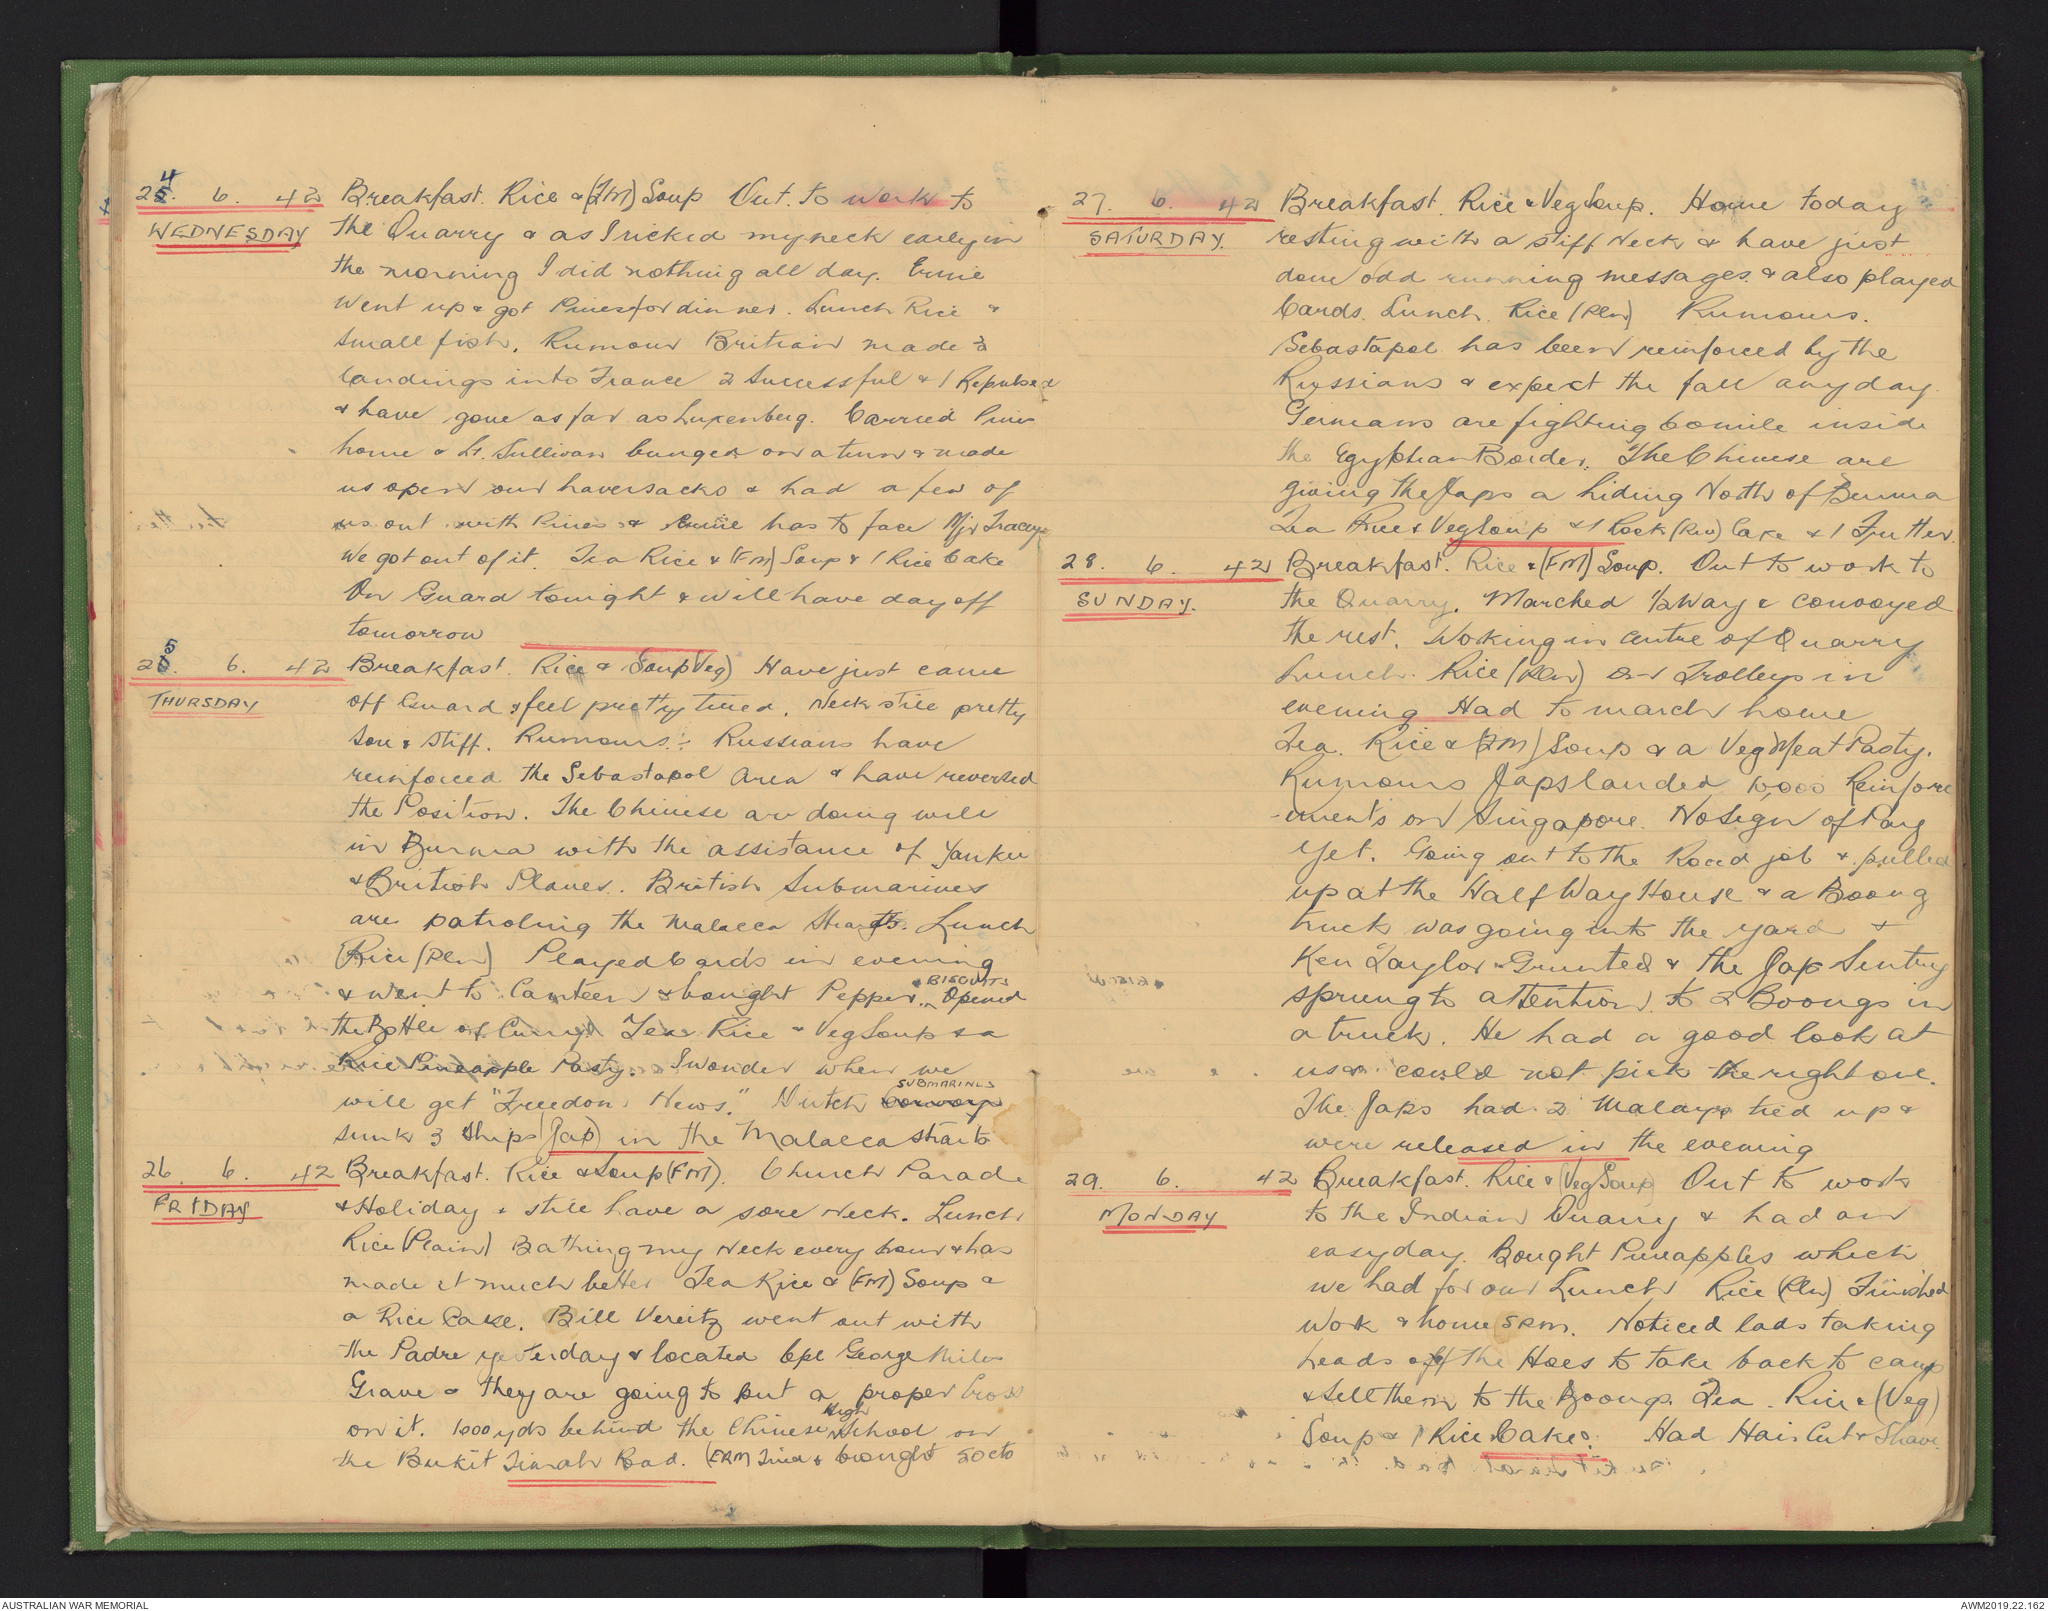 24. 6. 42 Breakfast. Rice & (FM) Soup Out to work to
WEDNESDAY the Quarry & as I ricked my neck early in
the morning I did nothing all day. Ernie
went up & got Pines for dinner. Lunch Rice &
small fish. Rumour Britian made 3
landings into France 2 Successful & 1 Repulsed
& have gone as far as Luxenberg. Carried Pines
home & Lt. Sullivan bunged on a turn & made
us open our haversacks & had a few of
us out with Pines & Ernie has to face Mjr Tracey
We got out of it. Tea Rice & (FM) Soup & 1 Rice Cake
On Guard tonight & will have day off
tomorrow
25. 6. 42 Breakfast. Rice & Soup (Veg) Have just came
THURSDAY off Guard & feel pretty tired. Neck still pretty
sore & stiff. Rumours: Russians have
reinforced the Sebastapol Area & have reversed
the Position. The Chinese are doing well
in Burma with the assistance of Yankee
& British Planes. British Submarines
are patroling the Malacca Straits. Lunch
Rice (Pln) Played Cards in evening
& went to Canteen & bought Pepper & BISCUITS. Opened
the Bottle of Curry. Tea Rice & Veg Soup & a
Rice Pineapple Pasty. I wonder when we
will get "Freedom News." Dutch Convoy SUBMARINES
sunk 3 Ships (Jap) in the Malacca Straits
26. 6. 42 Breakfast. Rice & Soup (FM). Church Parade
FRIDAY & Holiday & still have a sore neck. Lunch
Rice (Plain) Bathing my Neck every hour & has
made it much better Tea Rice & (FM) Soup &
a Rice Cake. Bill Vereitz went out with
the Padre yesterday & located Cpl George Miles
Grave & they are going to put a proper Cross
on it. 1000 yds behind the Chinese High School on
the Bukit Timah Road. (ERM) & bought 50 cts
27. 6. 42 Breakfast. Rice & Veg Soup. Home today
SATURDAY. resting with a stiff Neck & have just
done odd running messages & also played
Cards. Lunch. Rice (Pln) Rumours.
Sebastapol has been reinforced by the
Russians & expect the fall any day.
Germans are fighting 60 mile inside
the Egyptian Border. The Chinese are
giving the Japs a hiding North of Burma
Tea Rice & Veg Soup & 1 Rock (Rice) Cake & 1 Fritter.
28. 6. 42 Breakfast. Rice & (FM) Soup. Out to work to
SUNDAY. the Quarry. Marched 1/2 Way & convoyed
the rest. Woking in centre of Quarry
Lunch. Rice (Pln) On Trolleys in
evening Had to march home
Tea. Rice & (FM) Soup & a Veg Meat Pasty.
Rumours Japs landed 10,000 Reinforce
-ments on Singapore. No sign of Pay
Yet. Going out to the Road job & pulled
up at the Half Way House & a Boong
truck was going into the yard &
Ken Taylor Grunted & the Jap Sentry
sprung to attention to 2 Boongs in
a truck. He had a good look at
us & could not pick the right one.
The Japs had 2 Malays tied up &
were released in the evening
29. 6. 42 Breakfast. Rice & (Veg Soup) Out to work
MONDAY to the Indian Quarry & had an
easy day. Bought Pineapples which
we had for our Lunch Rice (Pln) Finished
Work & home 5 P.M. Noticed lads taking
heads off the Hoes to take back to camp
& Sell them to the Boongs. Tea. Rice & (Veg)
Soup & 1 Rice Cake. Had Hair Cut & Shave.
AUSTRALIAN WAR MEMORIAL
AWM2019.22.162